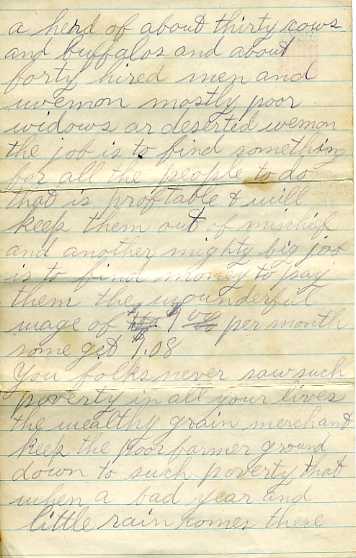 a herd of about thirty cows
and buffalos and about
forty hired men and
wemon mostly poor
widows or deserted wemon
the job is to find something
for all the people to do
that is profitable & will
keep them out of mischief
and another mighty big job
is to find money to pay
them the wounderful
wage of per month
some get $1.08
You folks never saw such
poverty in all your lives
the wealthy grain merchant
keep the poor farmer ground
down to such poverty that
when a bad year and
little rain comes there